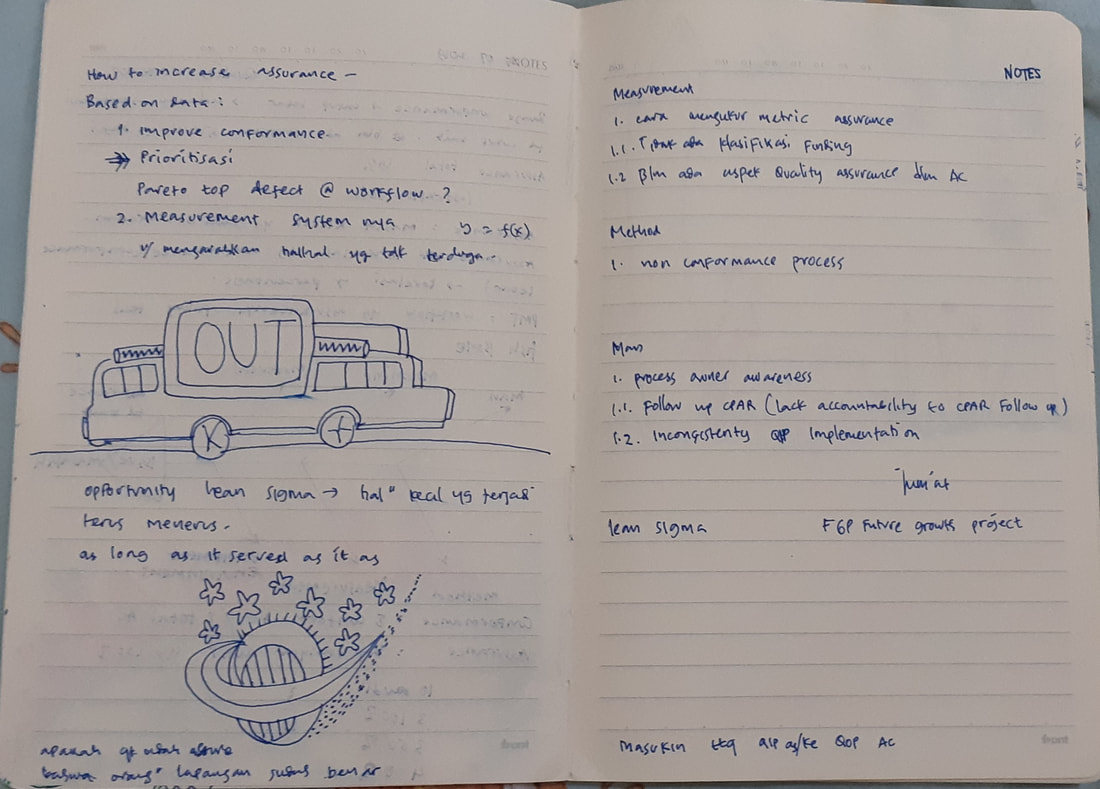 How to increase assurance –
Based on data :
1. Improve conformance
Prioritisasi
Pareto top defect @ workflow ?
2. Measurement system nya y = f(x)
u/ mengarahkan hal hal yg tdk terduga.
OUT
opportunity lean sigma → hal" kecil yg terjadi
terus menerus.
as long as it served as it as
apakah
bahwa orang" lapangan sudah benar
NOTES
Measurement
1. cara mengukur metric assurance
1.1. Tidak ada klasifikasi Funding
1.2 Blm ada aspek Quality assurance dlm AC
Method
1. non conformance process
Man
1. process owner awareness
1.1. Follow up CPAR (lack accountability to CPAR Follow up)
1.2. Inconsistenty QP Implementation
jum'at
lean sigma FGP Future growth project
Masukin ttg QOP AC